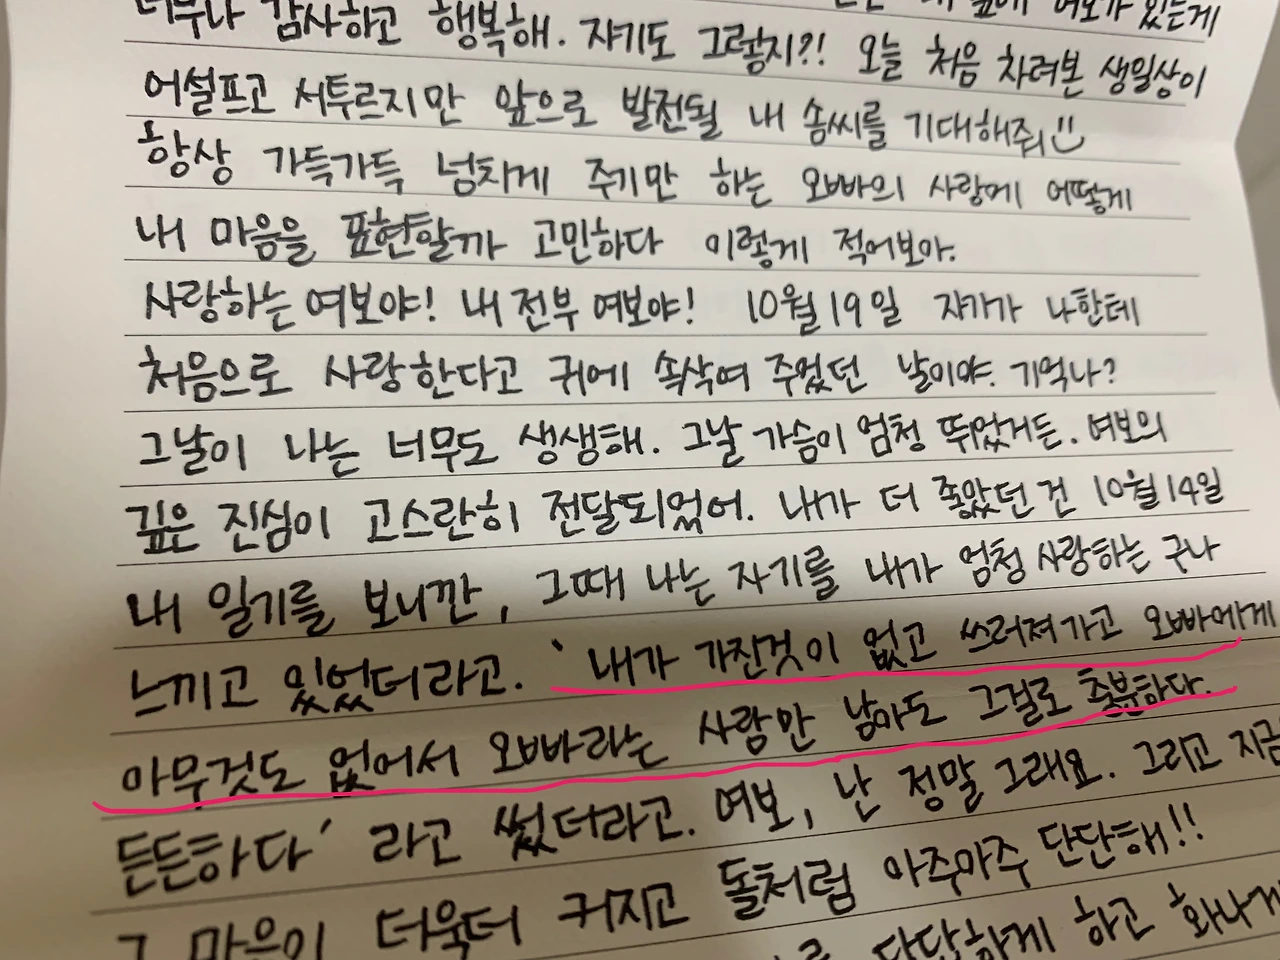 너무나 감사하고 행복해. 자기도 그렇지?! 오늘 처음 차려본 생일상이
어설프고 서투르지만 앞으로 발전될 내 솜씨를 기대해줘
항상 가득가득 넘치게 주기만 하는 오빠의 사랑에 어떻게
내 마음을 표현할까 고민하다 이렇게 적어보아.
사랑하는 여보야! 내 전부 여보야! 10월 19일 자기가 나한테
처음으로 사랑한다고 귀에 속삭여 주었던 날이야. 기억나?
그날이 나는 너무도 생생해. 그날 가슴이 엄청 뛰었거든. 여보의
깊은 진심이 고스란히 전달되었어. 내가 더 좋았던 건 10월 14일
내 일기를 보니깐, 그때 나는 자기를 내가 엄청 사랑하는 구나
느끼고 있었더라고. ‘내가 가진것이 없고 쓰러져가고 오빠에게
아무것도 없어서 오빠라는 사람만 남아도 그걸로 충분하다.
든든하다’ 라고 썼더라고. 여보, 난 정말 그래요. 그리고 지금
그 마음이 더욱더 커지고 돌처럼 아주아주 단단해!!
하고 화나게